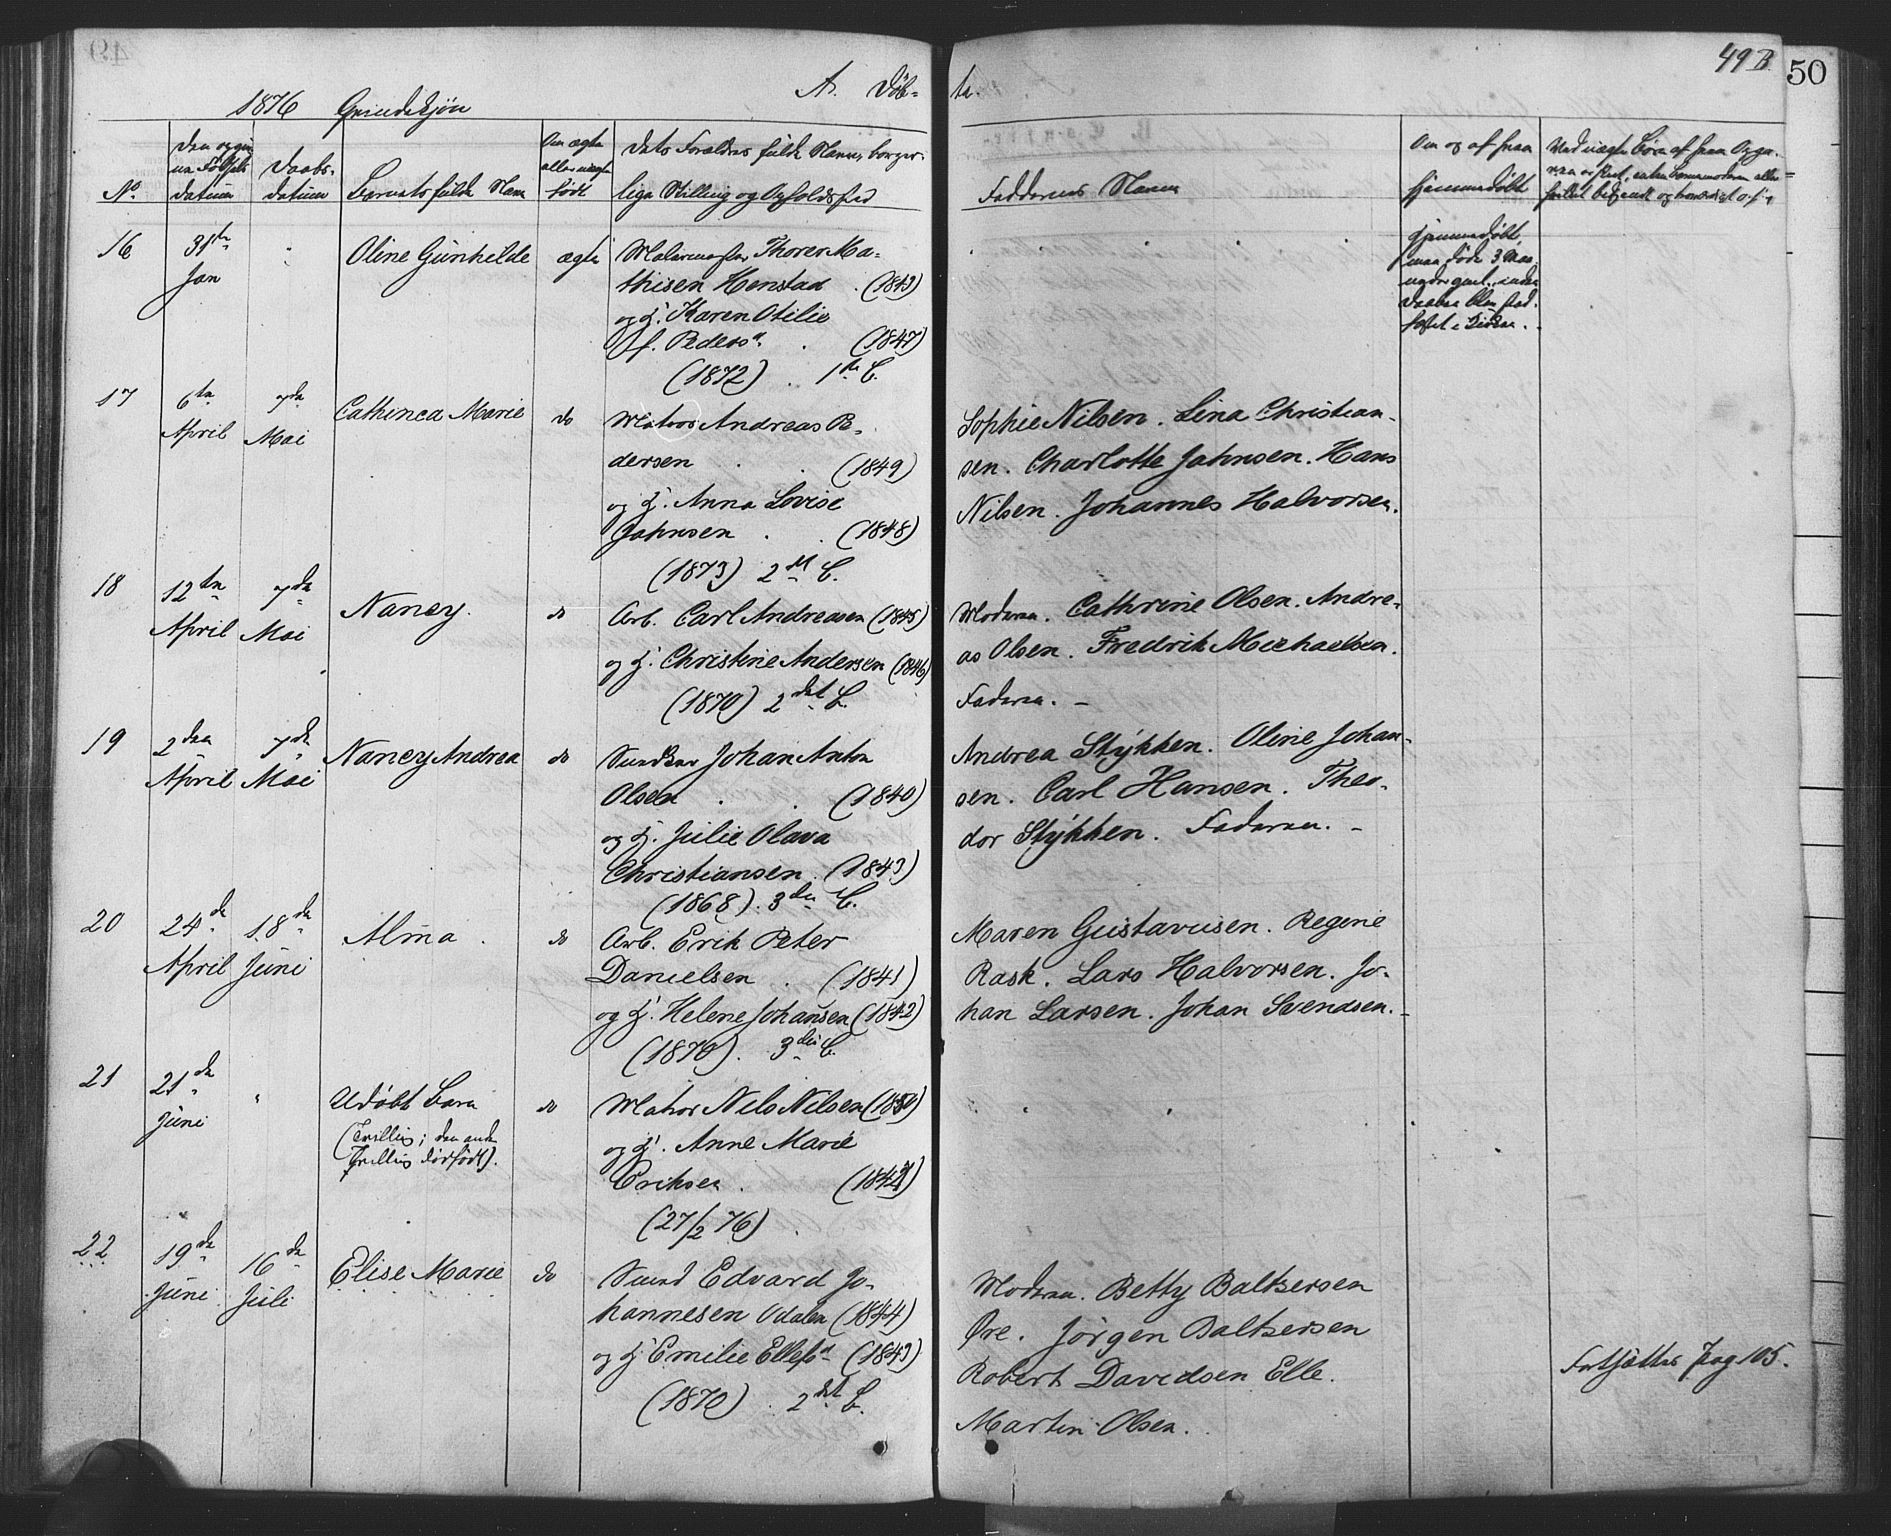 49 B.
50
A. Døb-
te.
1876 Grindskjøn
No.
Datum
Daabs-
datum
Barnets fulde Navn
Om ægte
eller uægte
født
Dets Forældres fulde Navne, borger-
lige Stilling og Opholdssted
Faddernes Navne
Om og af hvem
hjemmedøbt
16
31te
Jan
"
Oline Gunhilde
ægte
Malermester Thorer Ma-
thisen Henstad (1843)
og H. Karen Otilie
f. Peders. (1847)
(1872) . 1te B.
17
6te
April
7de
Mai
Cathinca Marie
do
Matros Andreas Pe-
dersen . . (1849)
og H. Anna Lovise
Jahnsen . . (1848)
(1873) 2det B.
Sophie Nilsen. Lina Christian-
sen. Charlotte Jahnsen. Hans
Nilsen. Johannes Halvorsen.
18
12te
April
7de
Mai
Nancy.
do
Arb. Carl Andreasen (1845)
og H. Christine Andersen (1846)
(1870) 2det B.
Moderen. Cathrine Olsen. Andre-
as Olsen. Fredrik Michaelsen.
Faderen. –
19
2den
April
7de
Mai
Nancy Andrea
do
Snedker Johan Anton
Olsen . . (1840)
og H. Julie Olava
Christiansen. (1843)
(1868). 3die B.
Andrea Stykken. Oline Johan-
sen. Carl Hansen. Theo-
dor Stykken. Faderen. –
20
24de
April
18de
Juni
Alma .
do
Arb. Erik Peter
Danielsen . (1841)
og H. Helene Johansen (1842)
(1870). 3die B.
Maren Gustavusen. Regine
Rask. Lars Halvorsen. Jo-
han Larsen. Johan Svendsen. –
21
21de
Juni
"
Udøbt Barn
(Tvilling; den anden
Tvilling dødfødt).
do
Matros Nils Nilsen (1850)
og H. Anne Marie
Eriksen .
(27/2 76) .
22
19de
Juni
16de
Juli
Elise Marie
do
Edvard Jo-
hannesen Odalen (1844)
og H. Emilie Ellefs. (1843)
(1870) . 2det B.
Moderen. Betty Baltzersen
Øre. Jørgen Baltzersen
Robert Davidsen Elle.
Martin Olsen.
Fortsættes Pag 105.